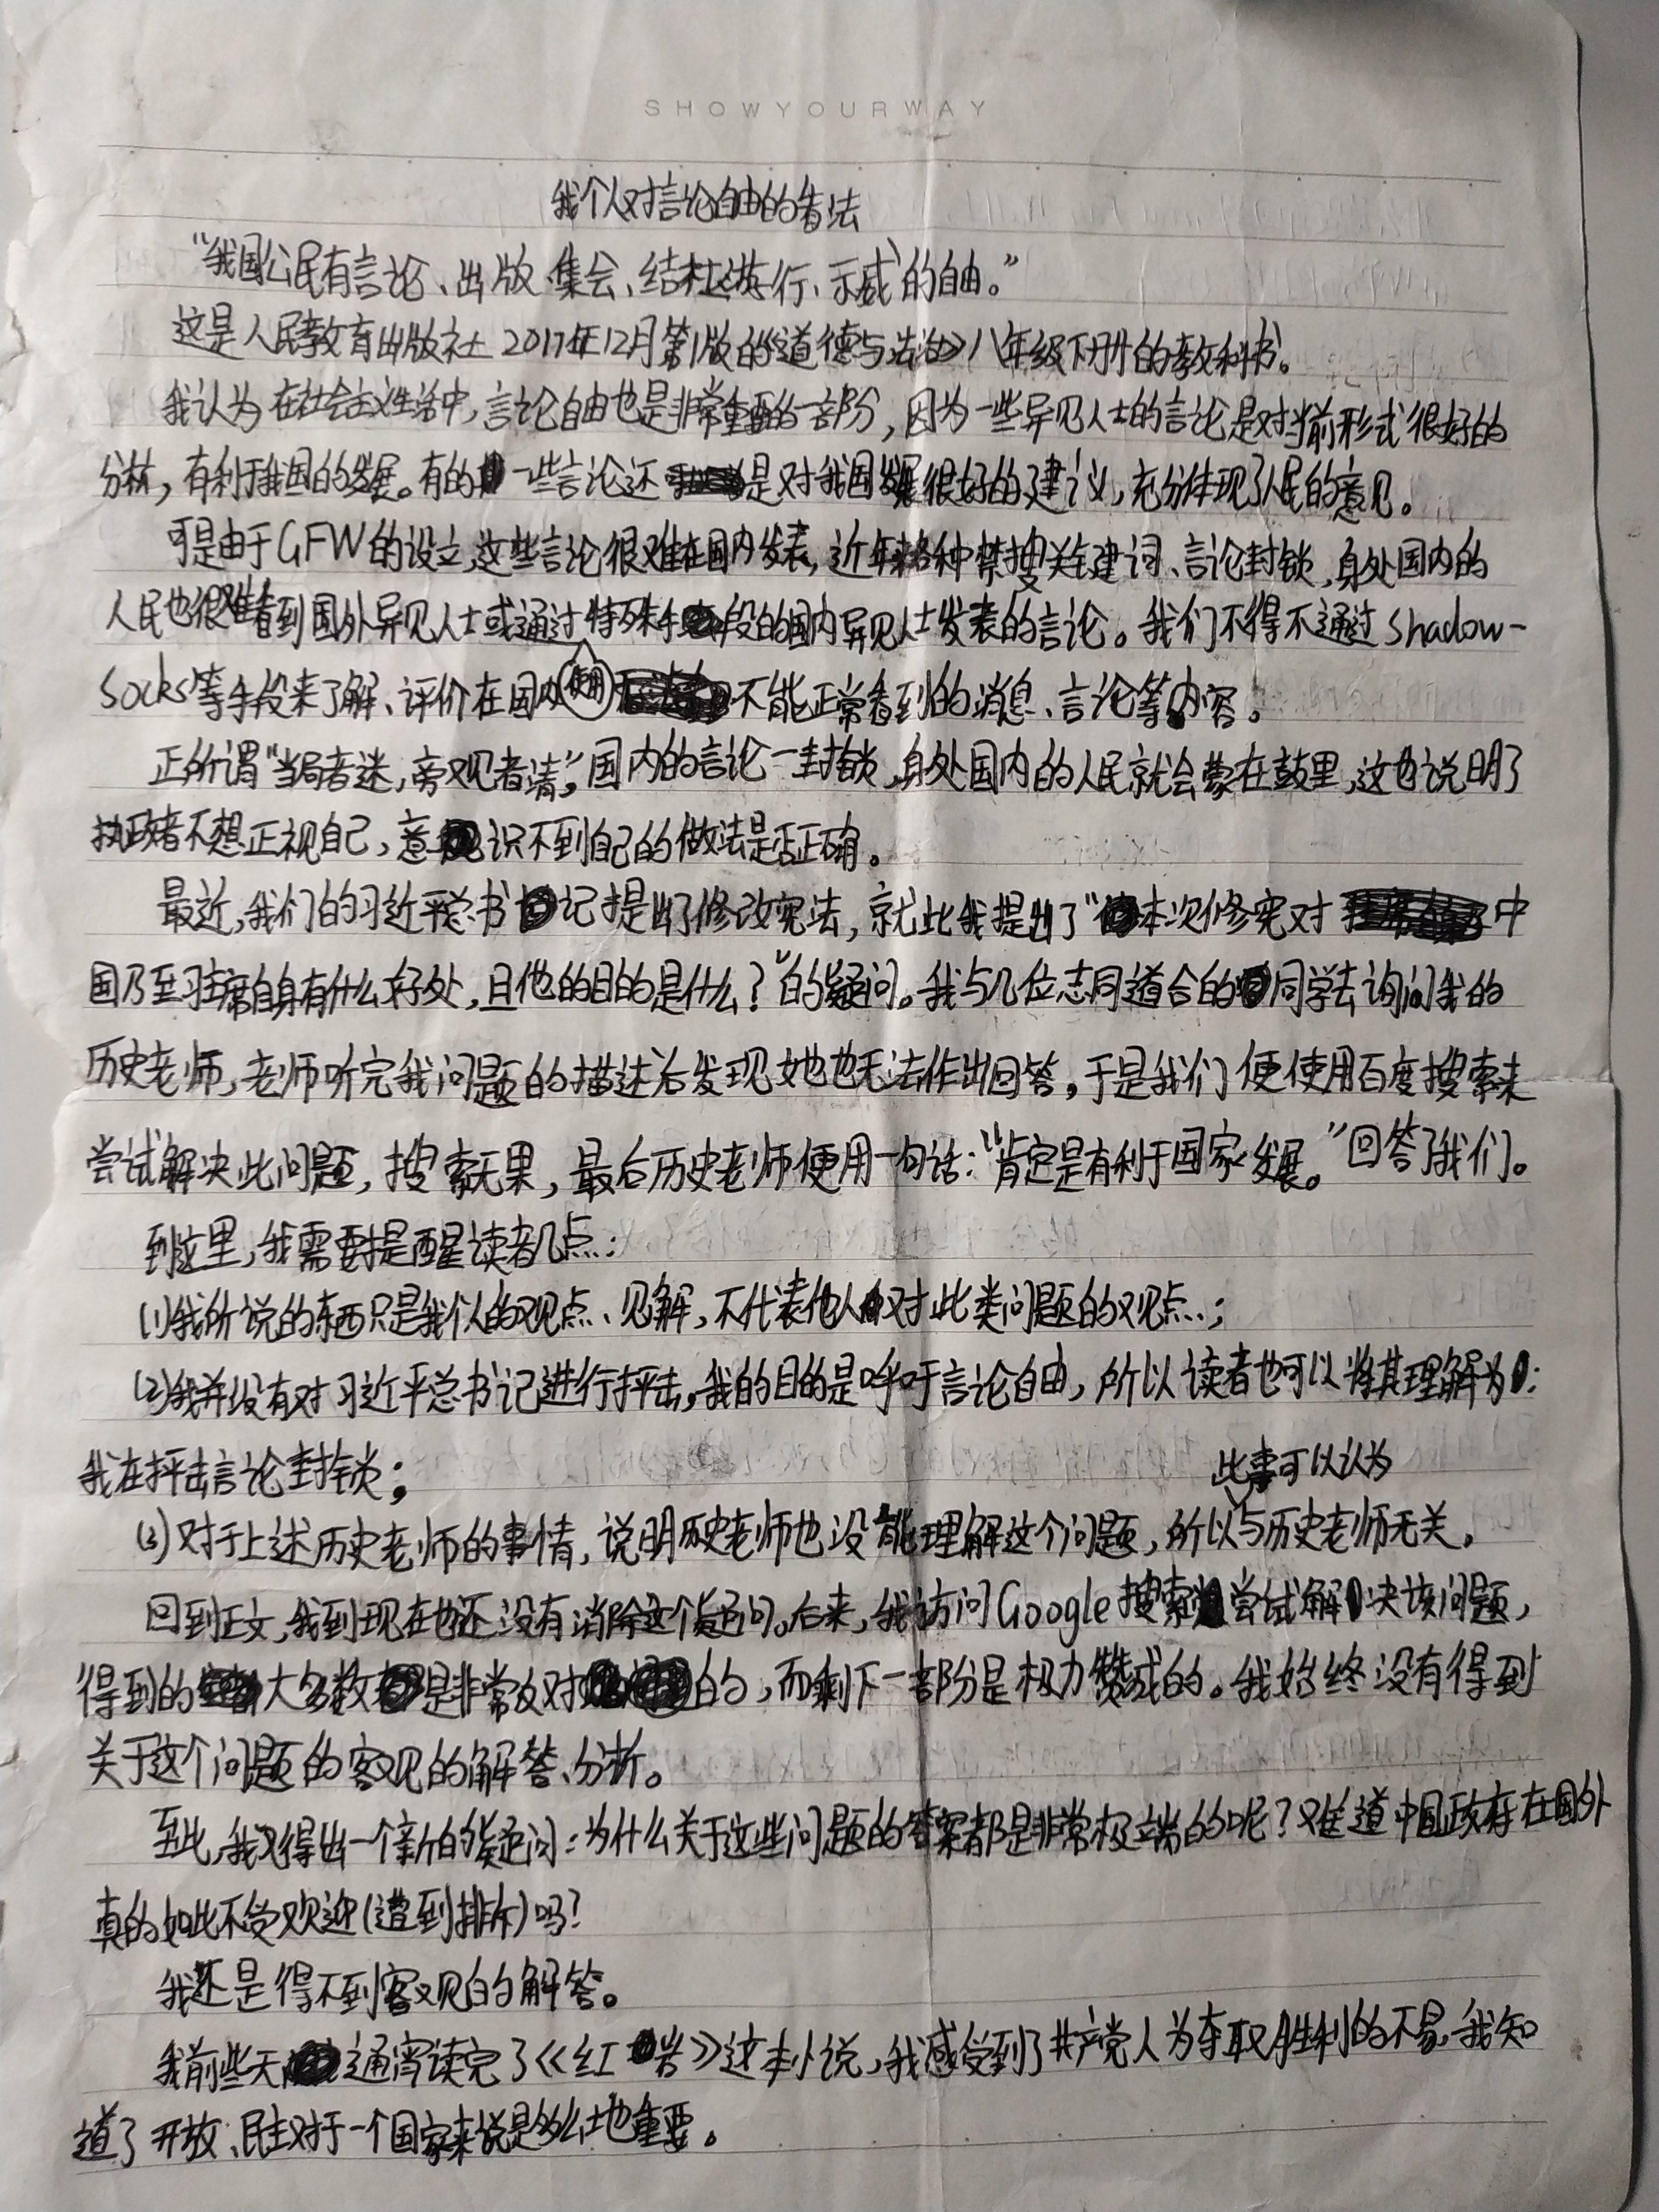 SHOWYOURWAY
我个人对言论自由的看法
“我国公民有言论、出版、集会、结社、游行、示威的自由。”
这是人民教育出版社2017年12月第1版的《道德与法治》八年级下册的教科书。
我认为在社会主义生活中，言论自由也是非常重要的一部分，因为一些异见人士的言论是对当前形式很好的
分析，有利于我国的发展。有的一些言论还是对我国发展很好的建议，充分体现了人民的意见。
可是由于GFW的设立，这些言论很难在国内发表，近年来各种禁搜关键词、言论封锁，身处国内的
人民也很难看到国外异见人士或通过特殊手段的国内异见人士发表的言论。我们不得不通过Shadow-
Socks等手段来了解、评价在国内不能正常看到的消息、言论等内容。
正所谓“当局者迷，旁观者清”，国内的言论一封锁，身处国内的人民就会蒙在鼓里，这也说明了
执政者不想正视自己，意识不到自己的做法是否正确。
最近，我们的习近平总书记提出了修改宪法，就此我提出了“本次修宪对中
国乃至习主席自身有什么好处，且他的目的是什么？”的疑问。我与几位志同道合的同学去询问我的
历史老师，老师听完我问题的描述后发现她也无法作出回答，于是我们便使用百度搜索来
尝试解决此问题，搜索无果，最后历史老师便用一句话：“肯定是有利于国家发展。”回答了我们。
到这里，我需要提醒读者几点：
(1)我所说的东西只是我个人的观点、见解，不代表他人对此类问题的观点；
(2)我并没有对习近平总书记进行抨击，我的目的是呼吁言论自由，所以读者也可以将其理解为：
我在抨击言论封锁；
此事可以认为
(3)对于上述历史老师的事情，说明历史老师也没能理解这个问题，所以与历史老师无关。
回到正文，我到现在也还没有消除这个疑问。后来，我访问Google搜索尝试解决该问题，
得到的大多数是非常反对的，而剩下一部分是极力赞成的。我始终没有得到
关于这个问题的客观的解答、分析。
至此，我又得出一个新的疑问：为什么关于这些问题的答案都是非常极端的呢？难道中国政府在国外
真的如此不受欢迎(遭到排斥)吗？
我还是得不到客观的解答。
我前些天通宵读完了《红岩》这本小说，我感受到了共产党人为夺取胜利的不易，我知
道了开放、民主对于一个国家来说是多么地重要。